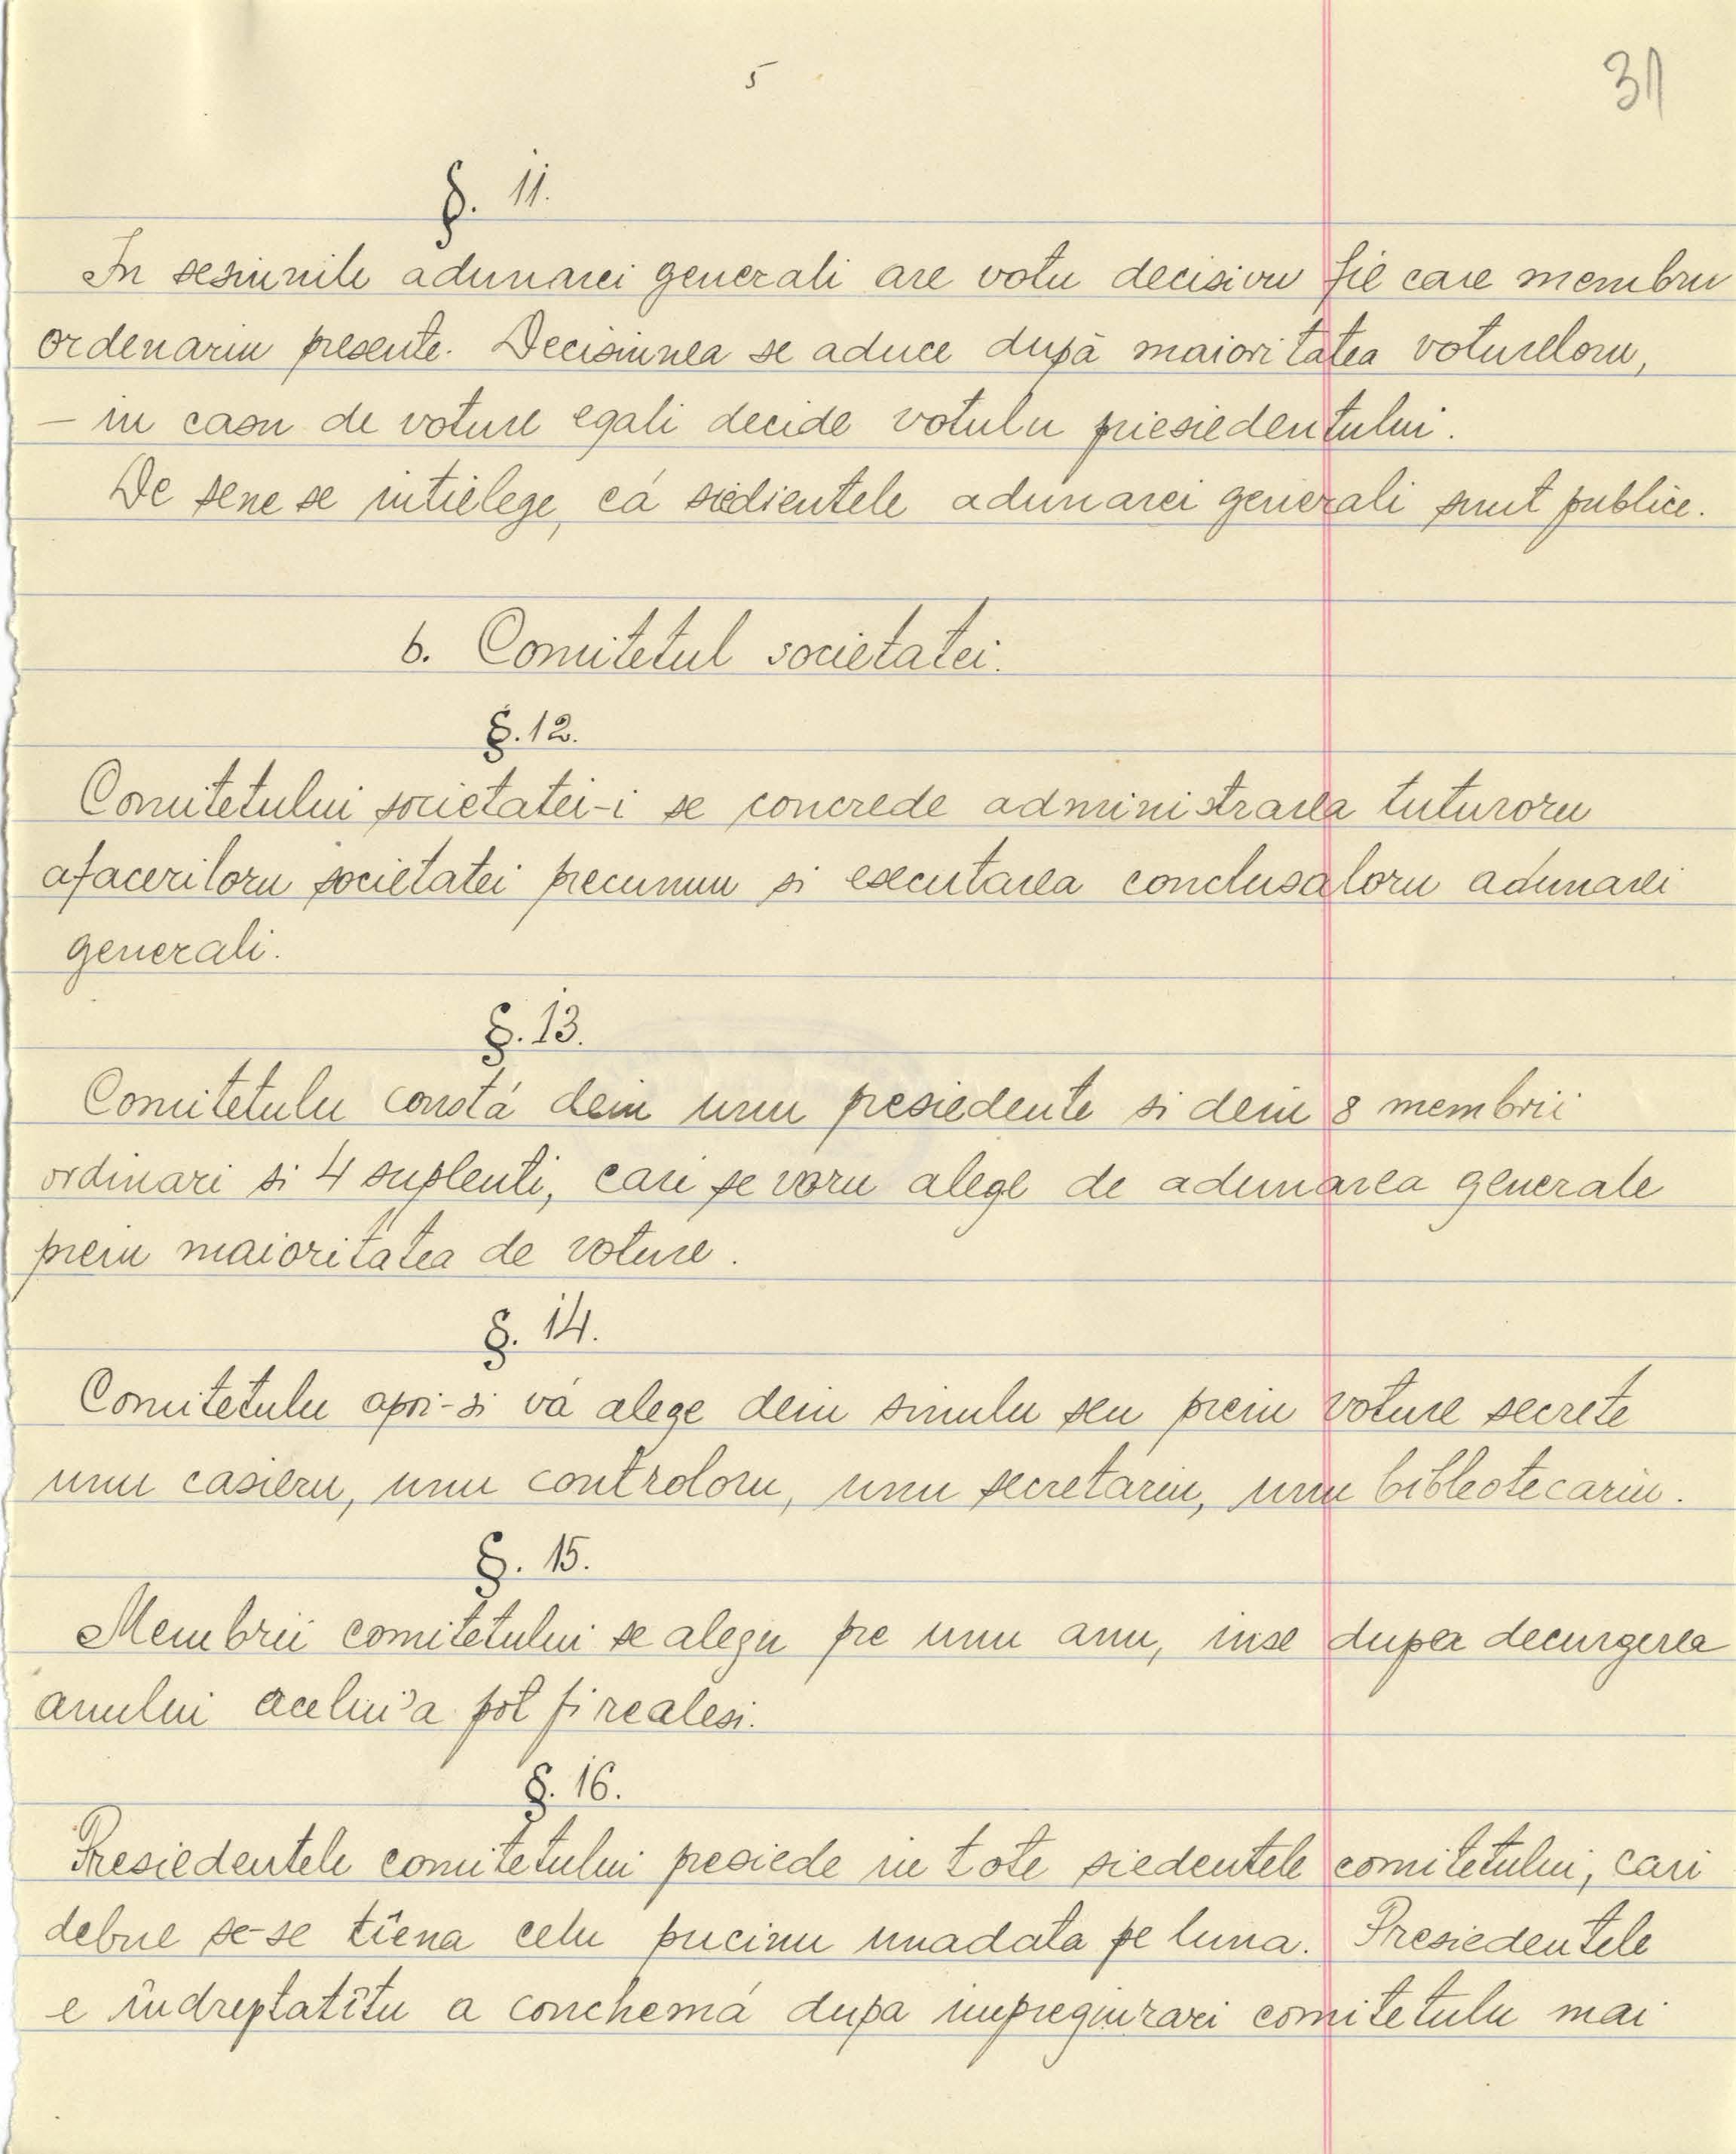 5
31
§. 11.
In sesiunile adunarei generali are votu decisivu fie care membru
ordenariu presente. Decisiunea se aduce după maioritatea voturiloru,
– in casu de voture egali decide votulu presiedentului.
De sene se intielege, cá siedientele adunarei generali sunt publice.
b. Comitetul societatei.
§. 12.
Comitetului societatei-i se concrede administrarea tuturoru
afaceriloru societatei precumu si esecutarea conclusaloru adunarei
generali.
§. 13.
Comitetulu constá dein unu presiedente si dein 8 membrii
ordinari si 4 suplenti, cari se voru alege de adunarea generale
prein maioritatea de voture.
§. 14.
Comitetulu apoi-si vá alege dein sinulu seu prein voture secrete
unu casieru, unu controloru, unu secretariu, unu bibleotecariu.
§. 15.
Membrii comitetului se alegu pre unu anu, inse dupa decurgerea
anului acelui'a pot fi realesi.
§. 16.
Presiedentele comitetului presiede in tote siedentele comitetului, cari
debue se-se tîena celu pucinu unadata pe luna. Presiedentele
e îndreptatîtu a conchemá dupa impregiurari comitetulu mai